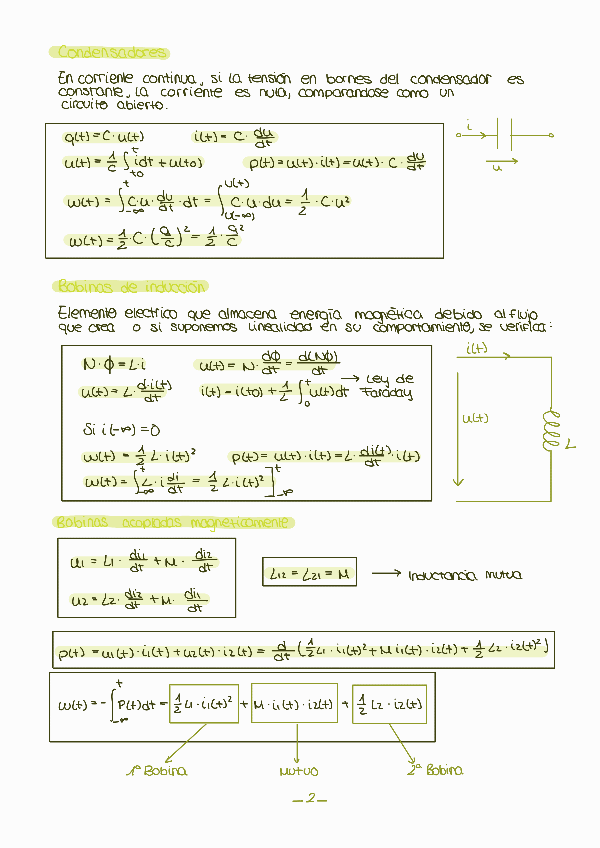 Condensadores
En corriente continua, si la tensión en bornes del condensador es
constante, la corriente es nula, comparandose como un
circuito abierto.
q(t) = C · u(t)    i(t) = C · du/dt
u(t) = 1/C ∫_{t0}^{t} i dt + u(t0)    p(t) = u(t) · i(t) = u(t) · C · du/dt
w(t) = ∫_{-∞}^{t} C · u · du/dt · dt = ∫_{u(-∞)}^{u(t)} C · u · du = 1/2 · C · u²
w(t) = 1/2 · C · (q/C)² = 1/2 · q²/C
i
u
Bobinas de inducción
Elemento electrico que almacena energía magnética debido al flujo
que crea o si suponemos linealidad en su comportamiento, se verifica:
N · Φ = L · i    u(t) = N · dΦ/dt = d(NΦ)/dt
u(t) = L · d·i(t)/dt    i(t) = i(t0) + 1/L ∫_{0}^{t} u(t) dt → Ley de Faraday
Si i(-∞) = 0
w(t) = 1/2 L · i(t)²    p(t) = u(t) · i(t) = L · di(t)/dt · i(t)
w(t) = ∫_{-∞}^{t} L · i di/dt = 1/2 L · i(t)² ]_{-∞}^{t}
i(t)
u(t)
L
Bobinas acopladas magneticamente
u1 = L1 · di1/dt + M · di2/dt
u2 = L2 · di2/dt + M · di1/dt
L12 = L21 = M → Inductancia mutua
p(t) = u1(t) · i1(t) + u2(t) · i2(t) = d/dt (1/2 L1 · i1(t)² + M i1(t) · i2(t) + 1/2 L2 · i2(t)²)
w(t) = - ∫_{-∞}^{t} P(t) dt = 1/2 L1 · i1(t)² + M · i1(t) · i2(t) + 1/2 L2 · i2(t)
1ª Bobina    Mutuo    2ª Bobina
— 2 —